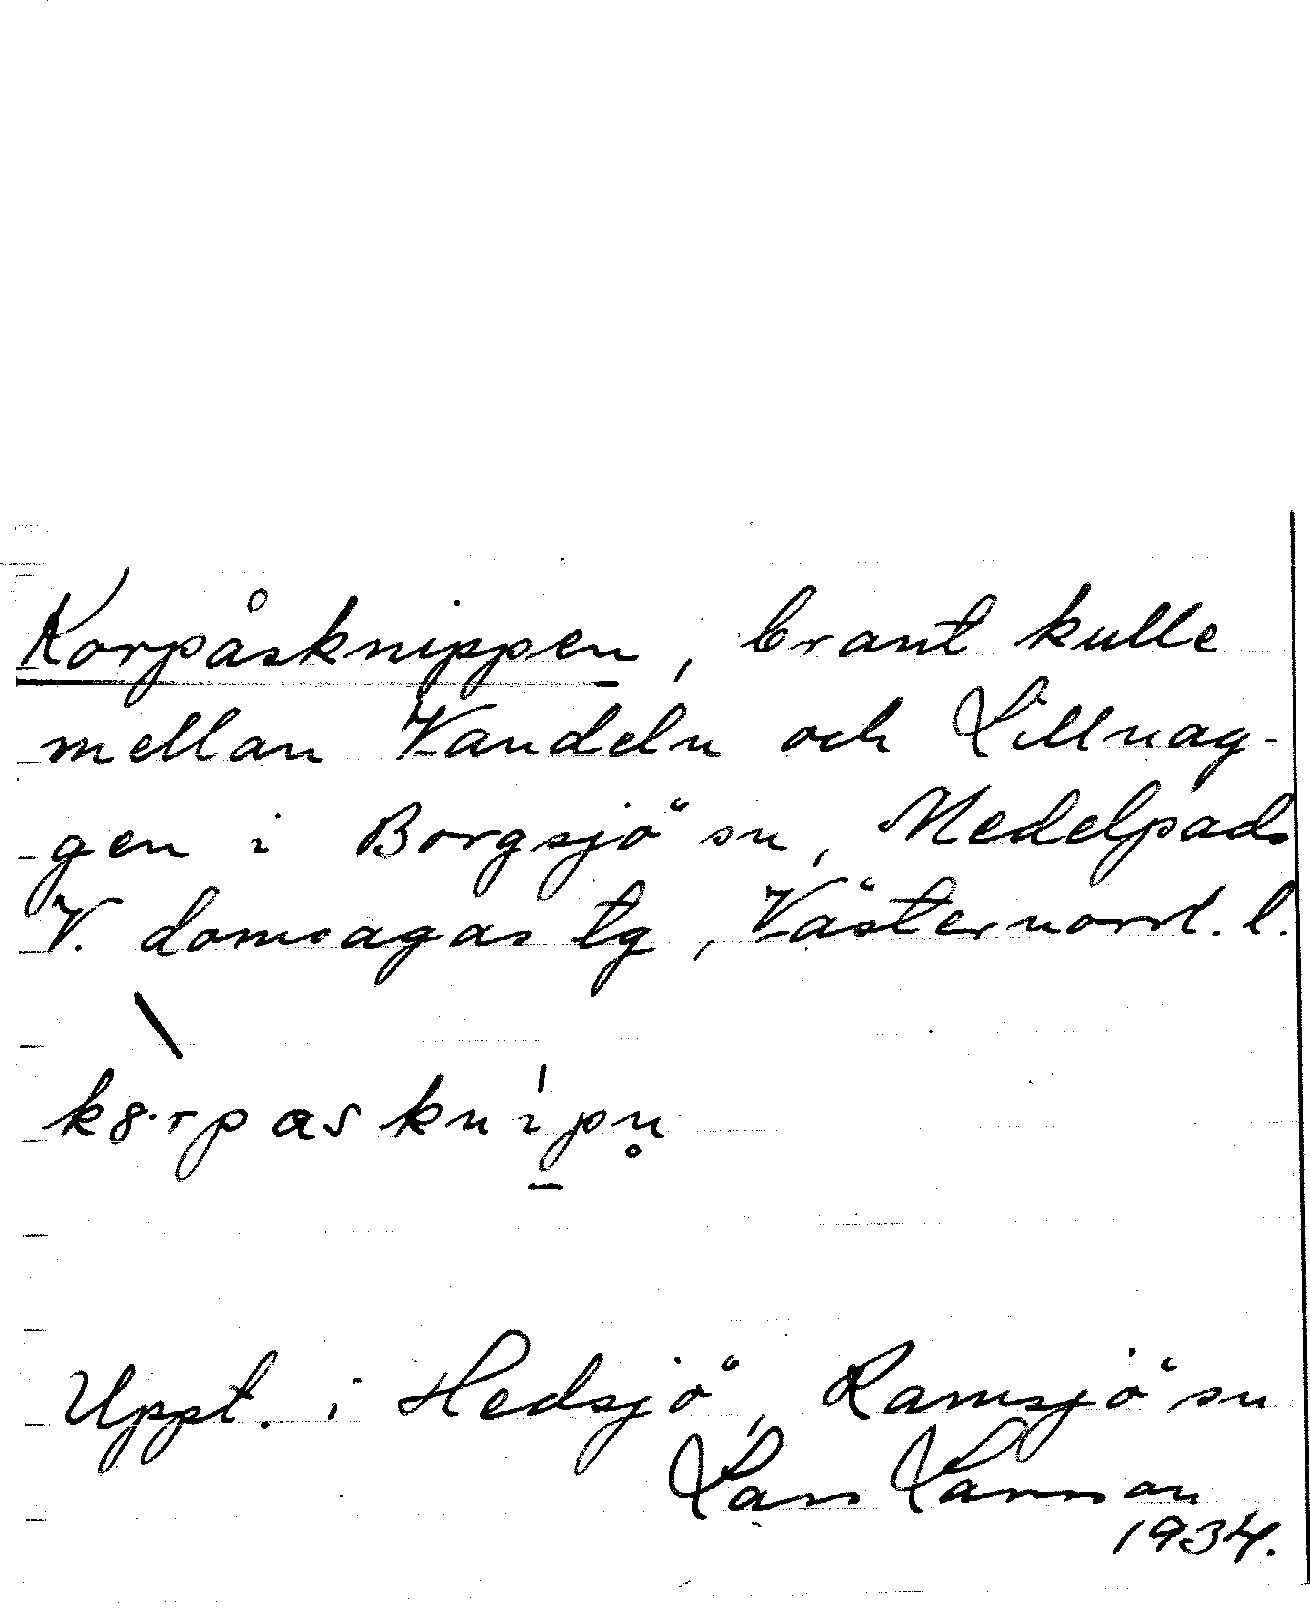 Korpåsknippen, brant kulle
mellan Vandeln och Lillnag-
gen i Borgsjö sn, Medelpads
V. domsagas tg, Västernorrl. l.
k8·rpasknipn̥
Uppt. i Hedsjö, Ramsjö sn
Lars Larsson
1934.